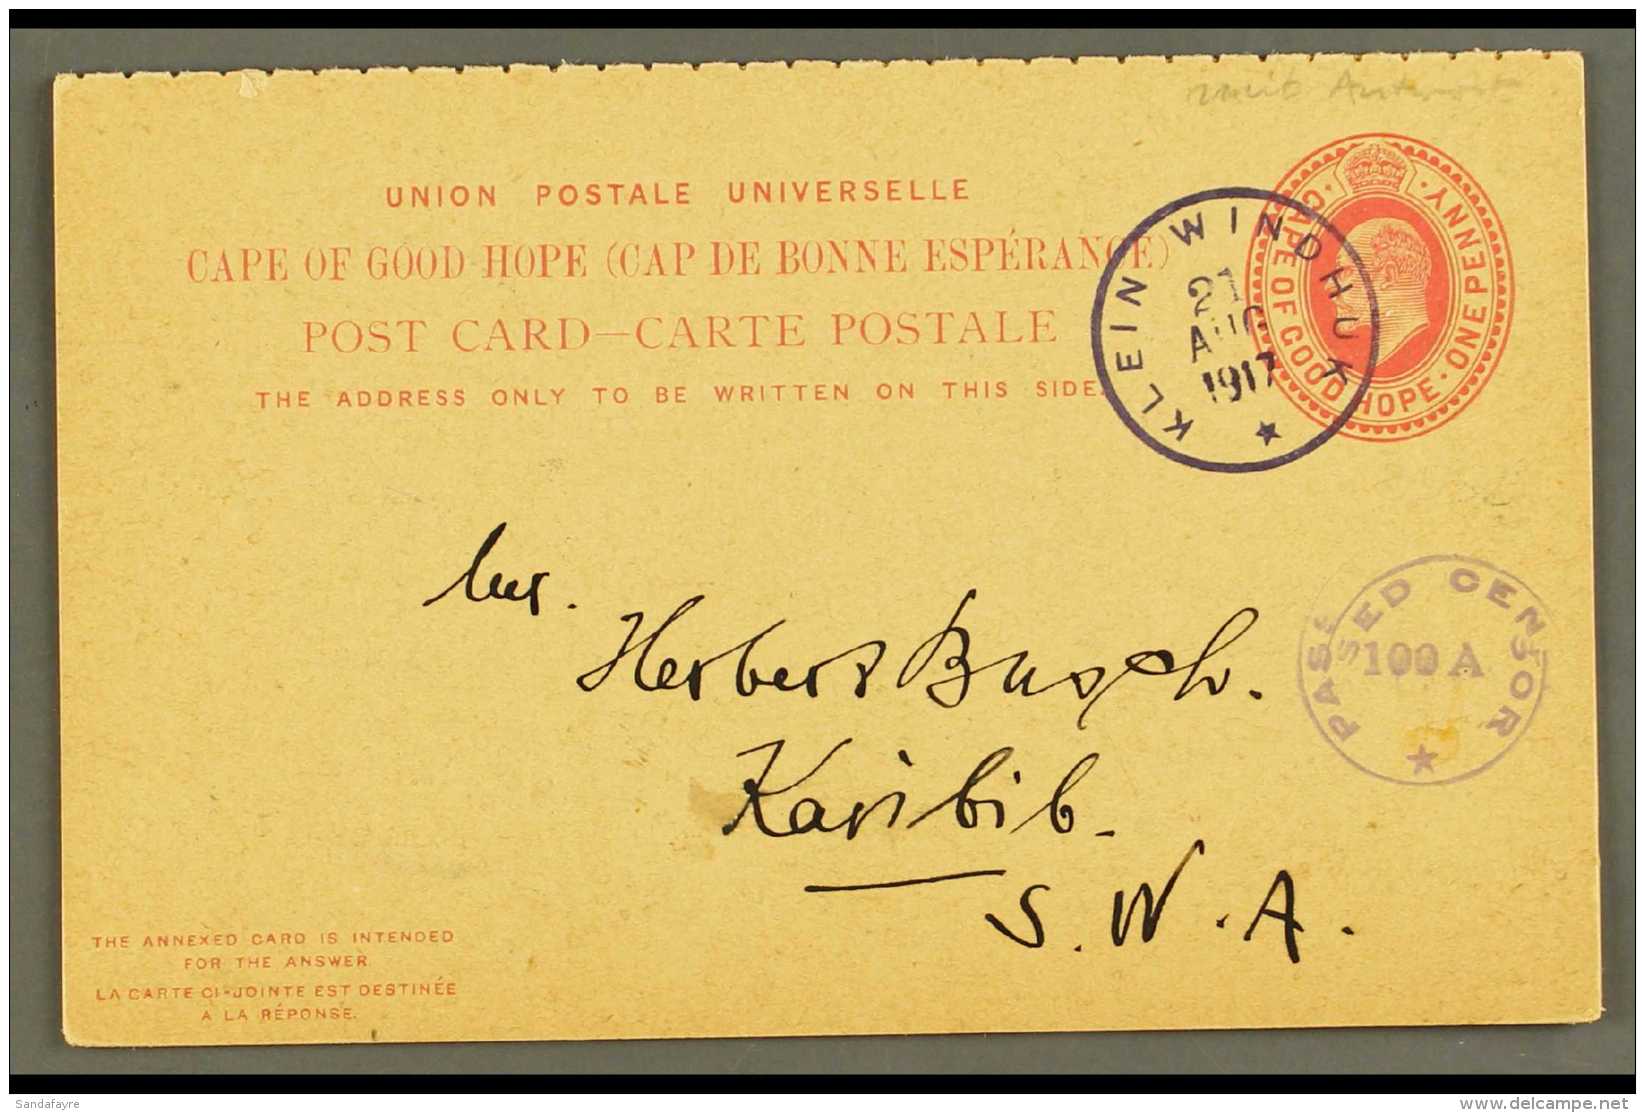 mit Antwort
UNION POSTALE UNIVERSELLE
CAPE OF GOOD HOPE (CAP DE BONNE ESPÉRANCE)
POST CARD—CARTE POSTALE
THE ADDRESS ONLY TO BE WRITTEN ON THIS SIDE.
CAPE OF GOOD HOPE · ONE PENNY
KLEIN WINDHUK
21
AUG
1917
PASSED CENSOR
100 A
Mr.
Herbert Busch.
Karibib.
S.W.A.
THE ANNEXED CARD IS INTENDED
FOR THE ANSWER.
LA CARTE CI-JOINTE EST DESTINÉE
À LA RÉPONSE.
Sandafayre
delcampe.net